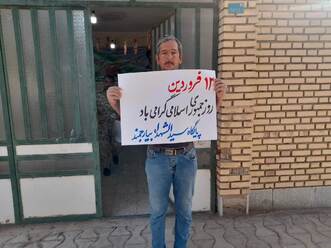 ۱۲ فروردین
روز جمهوری اسلامی گرامی باد
پایگاه سیدالشهداء بیارجمند